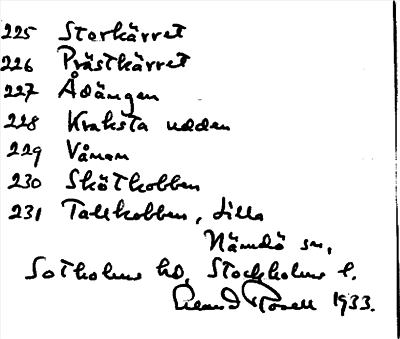 225 Storkärret
226 Prästkärret
227 Ådängen
228 Kraksta udden
229 Våmom
230 Skötkobben
231 Tallkobben, Lilla
Nämdö sn,
Sotholms hd, Stockholms l.
1933.